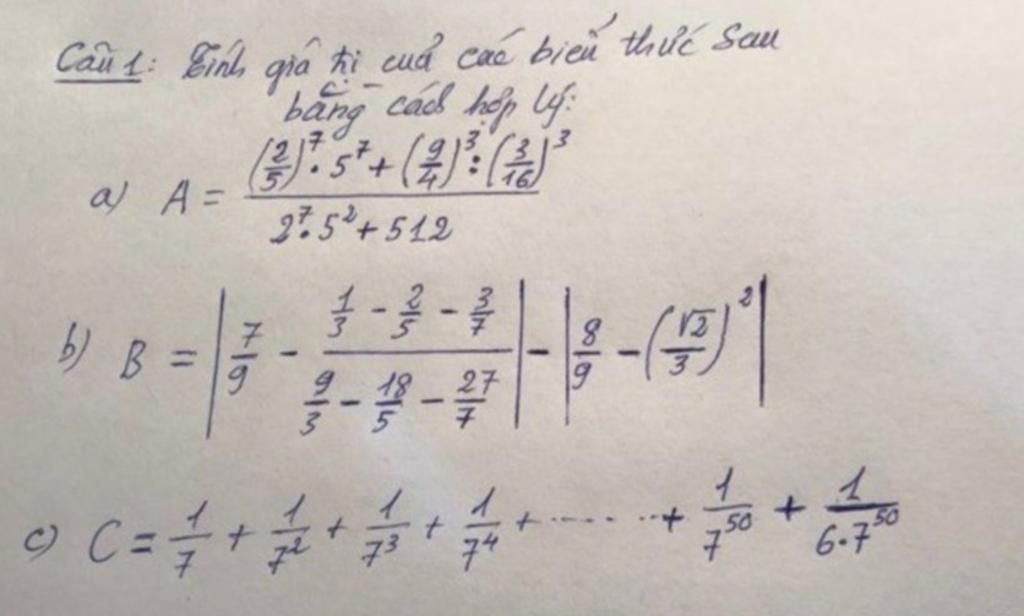 Câu 1: Tính giá trị cuả các biểu thức sau
bằng cách hợp lý:
a) A = ((2/5)^7 . 5^7 + (9/4)^3 : (3/16)^3) / (2^7 . 5^2 + 512)
b) B = |7/9 - (1/3 - 2/5 - 3/7) / (9/3 - 18/5 - 27/7)| - |8/9 - (√2/3)^2|
c) C = 1/7 + 1/7^2 + 1/7^3 + 1/7^4 + ........ + 1/7^50 + 1/(6.7^50)